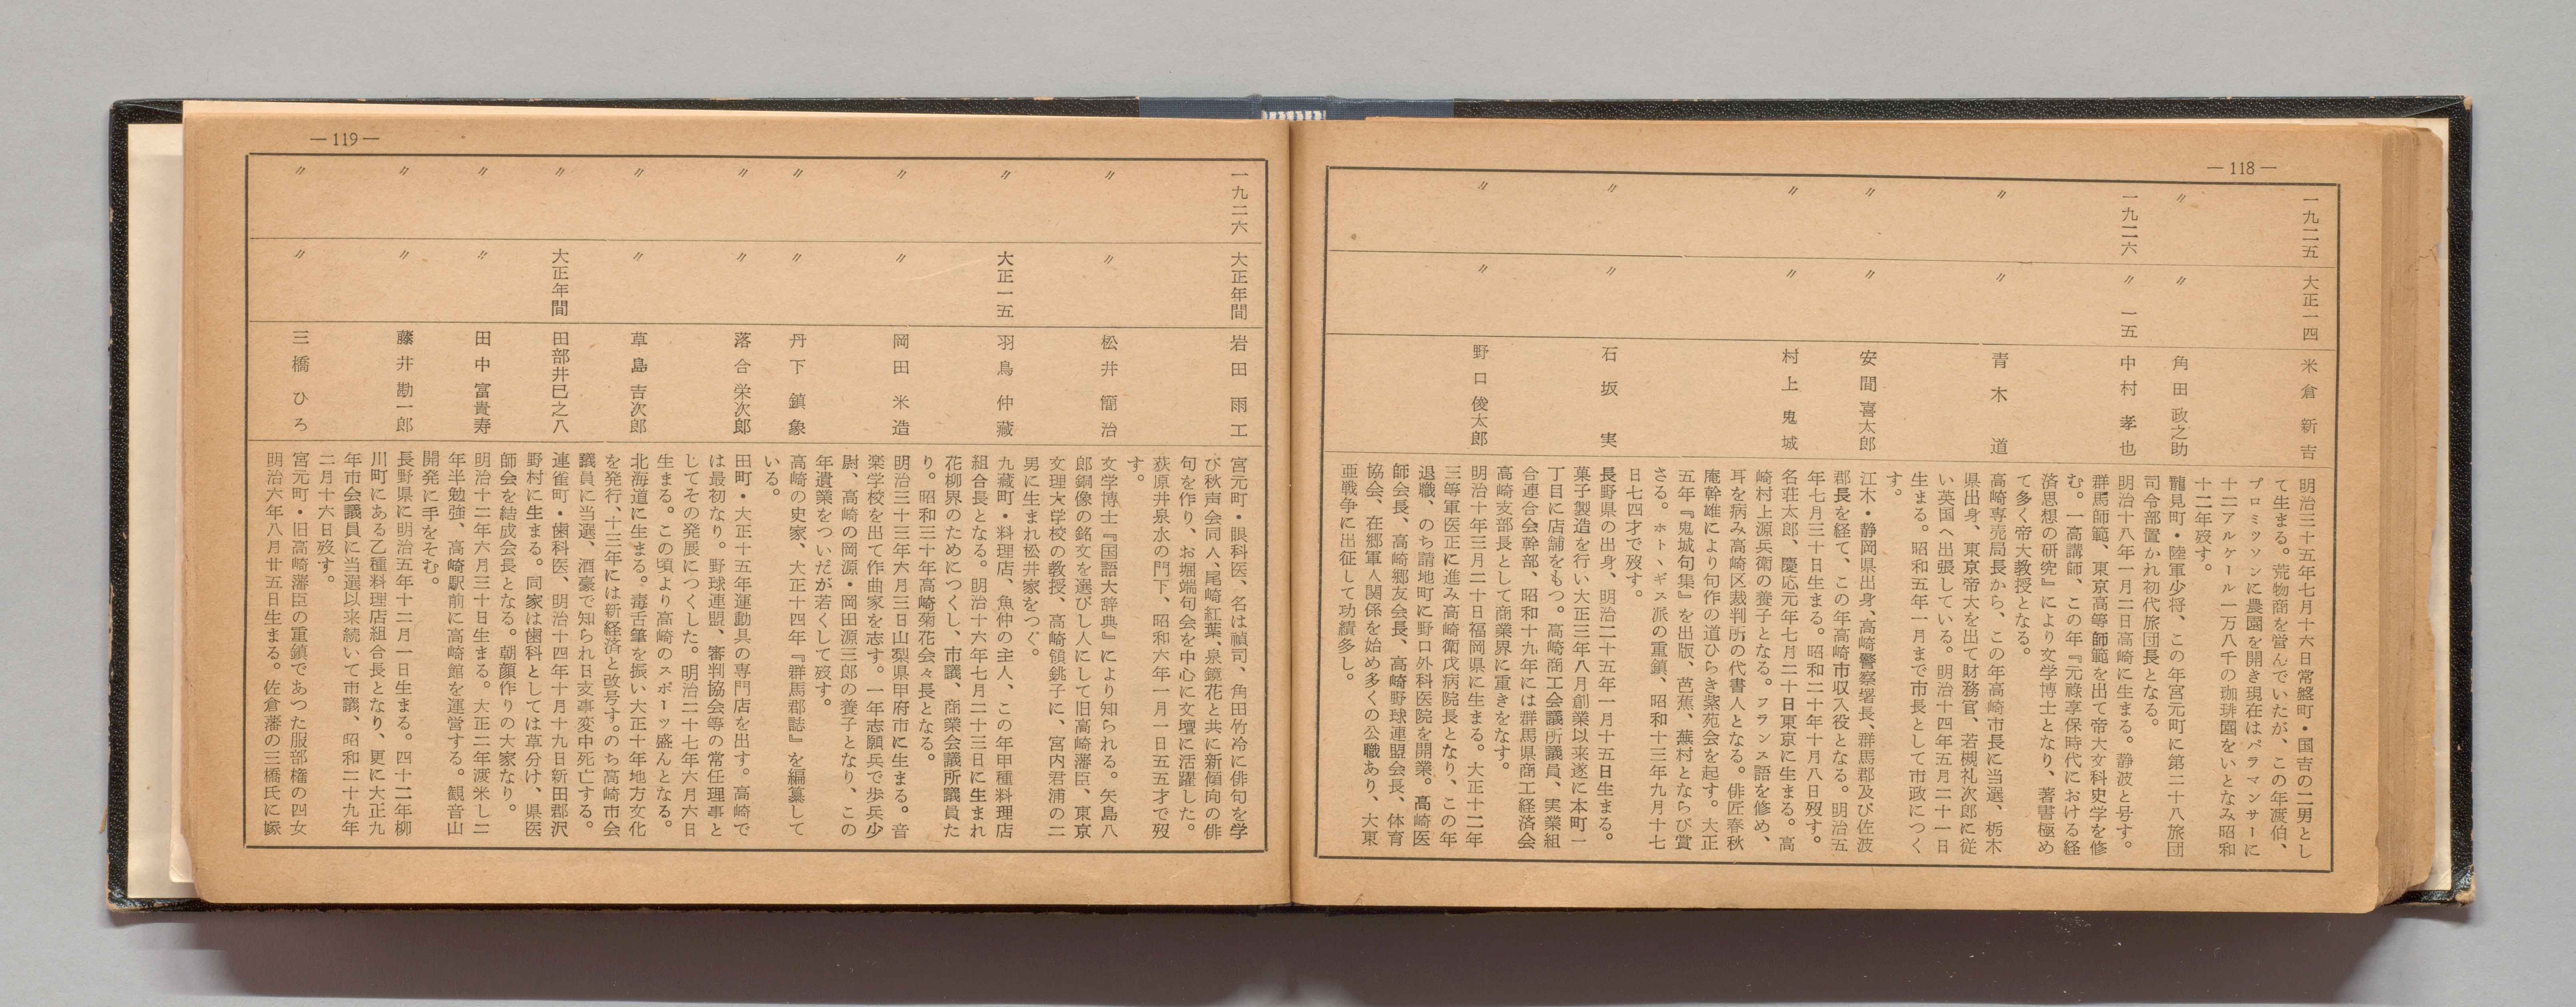 —118—
一九二五
大正一四
米倉新吉
明治三十五年七月十六日常盤町・国吉の二男とし
て生まる。荒物商を営んでいたが、この年渡伯、
プロミツソンに農園を開き現在はパラマンサーに
十二アルケール一万八千の珈琲園をいとなみ昭和
十二年歿す。
〃
〃
角田政之助
龍見町・陸軍少将、この年宮元町に第二十八旅団
司令部置かれ初代旅団長となる。
一九二六
〃一五
中村孝也
明治十八年一月二日高崎に生まる。静波と号す。
群馬師範、東京高等師範を出て帝大文科史学を修
む。一高講師、この年『元祿享保時代における経
済思想の研究』により文学博士となり、著書極め
て多く帝大教授となる。
〃
〃
青木道
高崎専売局長から、この年高崎市長に当選、栃木
県出身、東京帝大を出て財務官、若槻礼次郎に従
い英国へ出張している。明治十四年五月二十一日
生まる。昭和五年一月まで市長として市政につく
す。
〃
〃
安間喜太郎
江木・静岡県出身、高崎警察署長、群馬郡及び佐波
郡長を経て、この年高崎市収入役となる。明治五
年七月三十日生まる。昭和二十年十月八日歿す。
〃
〃
村上鬼城
名荘太郎、慶応元年七月二十日東京に生まる。高
崎村上源兵衛の養子となる。フランス語を修め、
耳を病み高崎区裁判所の代書人となる。俳匠春秋
庵幹雄により句作の道ひらき紫苑会を起す。大正
五年『鬼城句集』を出版、芭蕉、蕪村とならび賞
さる。ホトヽギス派の重鎮、昭和十三年九月十七
日七四才で歿す。
〃
〃
石坂実
長野県の出身、明治二十五年一月十五日生まる。
菓子製造を行い大正三年八月創業以来遂に本町一
丁目に店舗をもつ。高崎商工会議所議員、実業組
合連合会幹部、昭和十九年には群馬県商工経済会
高崎支部長として商業界に重きをなす。
〃
〃
野口俊太郎
明治十年三月二十日福岡県に生まる。大正十二年
三等軍医正に進み高崎衛戍病院長となり、この年
退職、のち請地町に野口外科医院を開業。高崎医
師会長、高崎郷友会長、高崎野球連盟会長、体育
協会、在郷軍人関係を始め多くの公職あり、大東
亜戦争に出征して功績多し。
—119—
一九二六
大正年間
岩田雨工
宮元町・眼科医、名は禎司、角田竹冷に俳句を学
び秋声会同人、尾崎紅葉、泉鏡花と共に新傾向の俳
句を作り、お堀端句会を中心に文壇に活躍した。
荻原井泉水の門下、昭和六年一月一日五五才で歿
す。
〃
〃
松井簡治
文学博士『国語大辞典』により知られる。矢島八
郎銅像の銘文を選びし人にして旧高崎藩臣、東京
文理大学校の教授、高崎領銚子に、宮内君浦の二
男に生まれ松井家をつぐ。
〃
大正一五
羽鳥仲藏
九蔵町・料理店、魚仲の主人、この年甲種料理店
組合長となる。明治十六年七月二十三日に生まれ
花柳界のためにつくし、市議、商業会議所議員た
り。昭和三十年高崎菊花会々長となる。
〃
〃
岡田米造
明治三十三年六月三日山梨県甲府市に生まる。音
楽学校を出て作曲家を志す。一年志願兵で歩兵少
尉、高崎の岡源・岡田源三郎の養子となり、この
年遺業をついだが若くして歿す。
〃
〃
丹下鎮象
高崎の史家、大正十四年『群馬郡誌』を編纂して
いる。
〃
〃
落合栄次郎
田町・大正十五年運動具の専門店を出す。高崎で
は最初なり。野球連盟、審判協会等の常任理事と
してその発展につくした。明治二十七年六月六日
生まる。この頃より高崎のスポーツ盛んとなる。
〃
〃
草島吉次郎
北海道に生まる。毒舌筆を振い大正十年地方文化
を発行、十三年には新経済と改号す。のち高崎市会
議員に当選、酒豪で知られ日支事変中死亡する。
〃
大正年間
田部井巳之八
連雀町・歯科医、明治十四年十月十九日新田郡沢
野村に生まる。同家は歯科としては草分け、県医
師会を結成会長となる。朝顔作りの大家なり。
〃
〃
田中富貴寿
明治十二年六月三十日生まる。大正二年渡米し二
年半勉強、高崎駅前に高崎館を運営する。観音山
開発に手をそむ。
〃
〃
藤井勘一郎
長野県に明治五年十二月一日生まる。四十二年柳
川町にある乙種料理店組合長となり、更に大正九
年市会議員に当選以来続いて市議、昭和二十九年
二月十六日歿す。
〃
〃
三橋ひろ
宮元町・旧高崎藩臣の重鎮であつた服部権の四女
明治六年八月廿五日生まる。佐倉藩の三橋氏に嫁